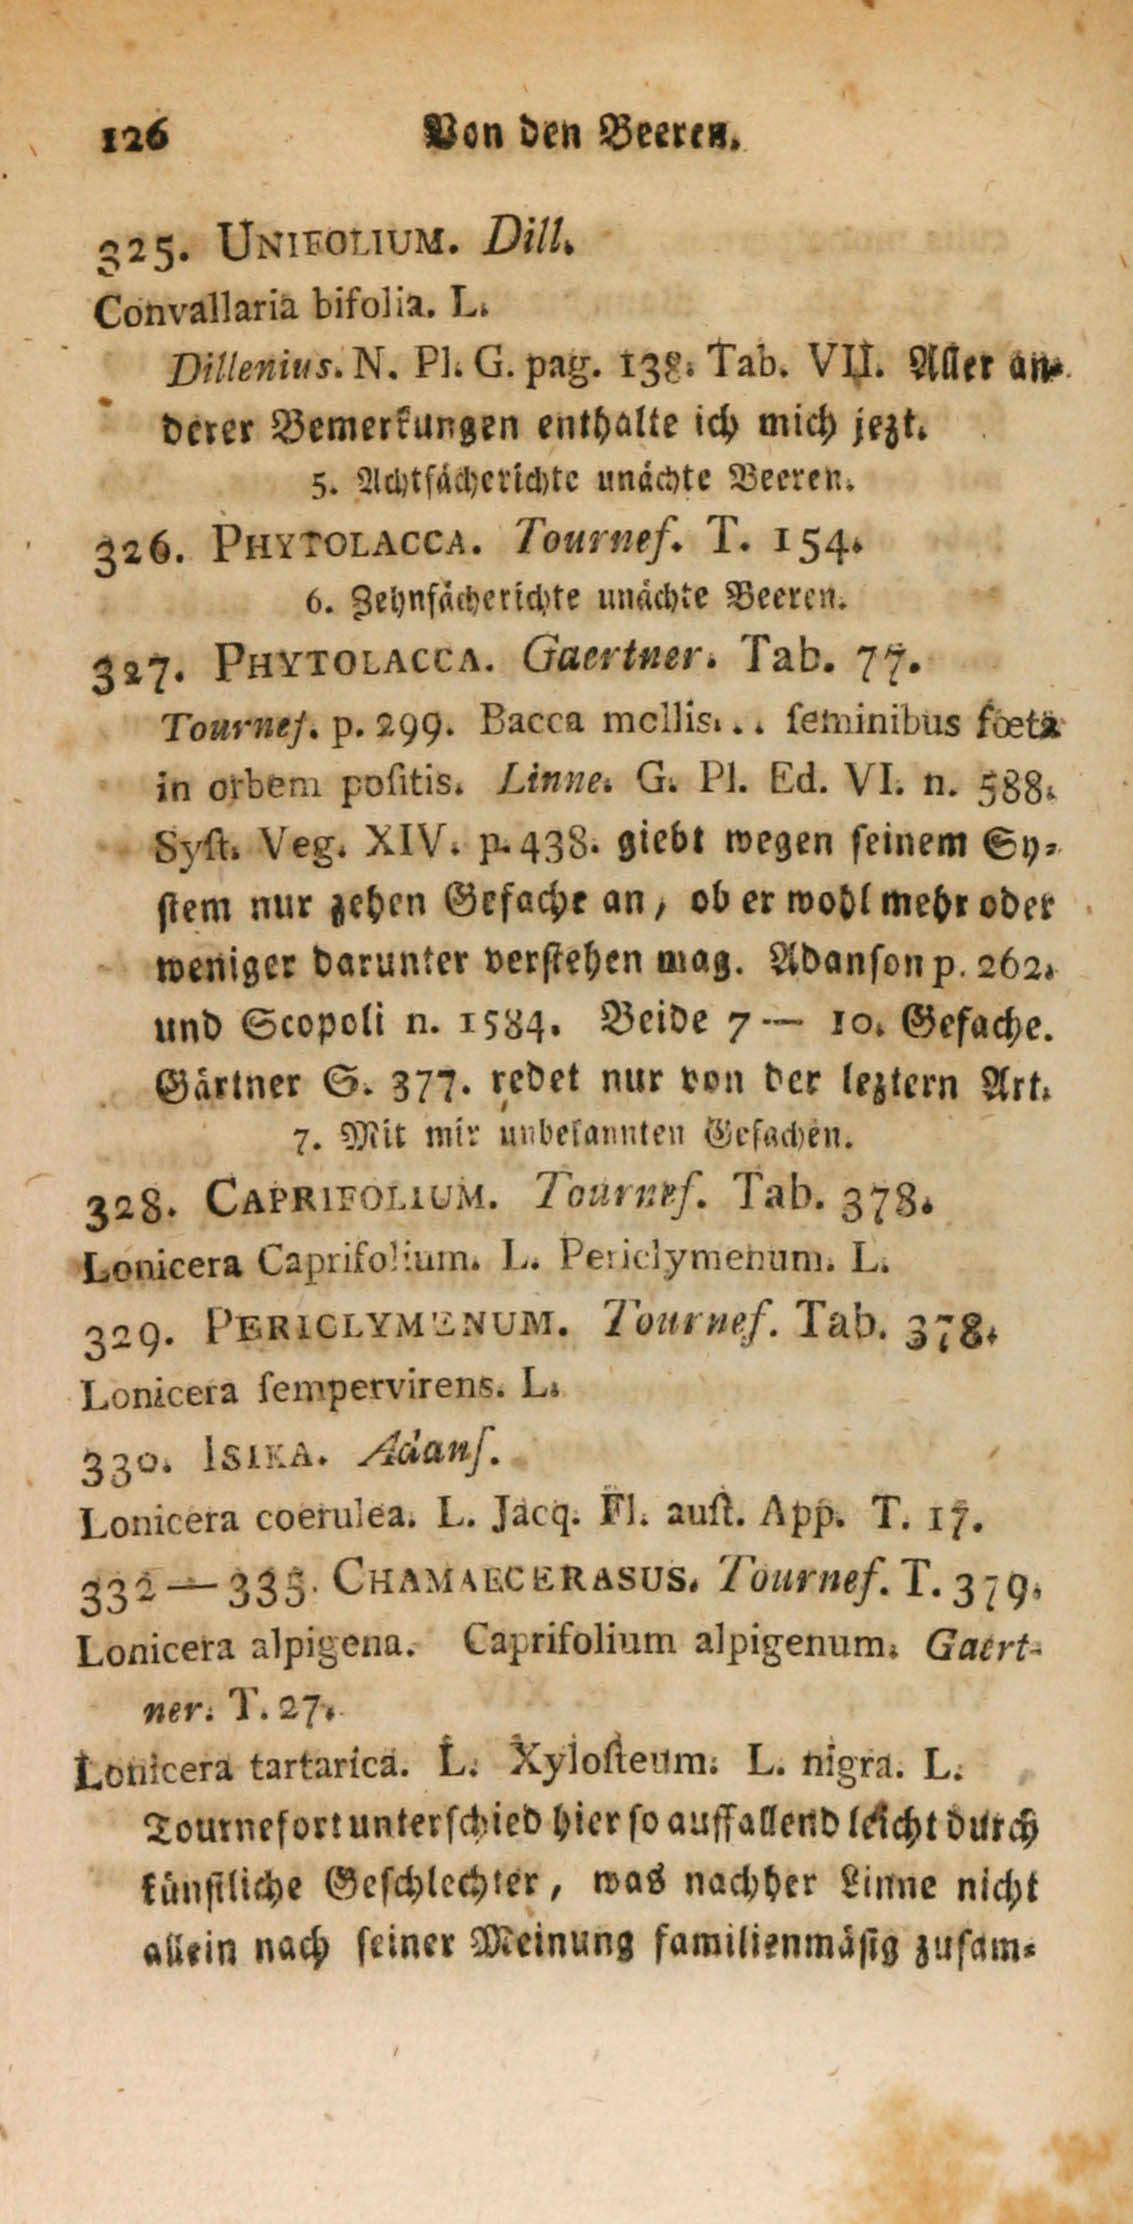 126 Von den Beeren.
325. UNIFOLIUM. Dill.
Convallaria bifolia. L.
Dillenius. N. Pl. G. pag. 138. Tab. VII. Aller an-
derer Bemerkungen enthalte ich mich jezt.
5. Achtfächerichte unächte Beeren.
326. PHYTOLACCA. Tournef. T. 154.
6. Zehnfächerichte unächte Beeren.
327. PHYTOLACCA. Gaertner. Tab. 77.
Tournef. p. 299. Bacca mollis... ſeminibus fœta
in orbem poſitis. Linne. G. Pl. Ed. VI. n. 588.
Syſt. Veg. XIV. p. 438. giebt wegen ſeinem Sy-
ſtem nur zehen Gefache an, ob er wohl mehr oder
weniger darunter verſtehen mag. Adanſon p. 262.
und Scopoli n. 1584. Beide 7 — 10. Gefache.
Gärtner S. 377. redet nur von der leztern Art.
7. Mit mir unbekannten Gefachen.
328. CAPRIFOLIUM. Tournef. Tab. 378.
Lonicera Caprifolium. L. Periclymenum. L.
329. PERICLYMENUM. Tournef. Tab. 378.
Lonicera ſempervirens. L.
330. ISIKA. Adanſ.
Lonicera coerulea. L. Jacq. Fl. auſt. App. T. 17.
332 — 335. CHAMAECERASUS. Tournef. T. 379.
Lonicera alpigena. Caprifolium alpigenum. Gaert-
ner. T. 27.
Lonicera tartarica. L. Xyloſteum. L. nigra. L.
Tournefort unterſchied hier ſo auffallend leicht durch
künſtliche Geſchlechter, was nachher Linne nicht
allein nach ſeiner Meinung familienmäſig zuſam-